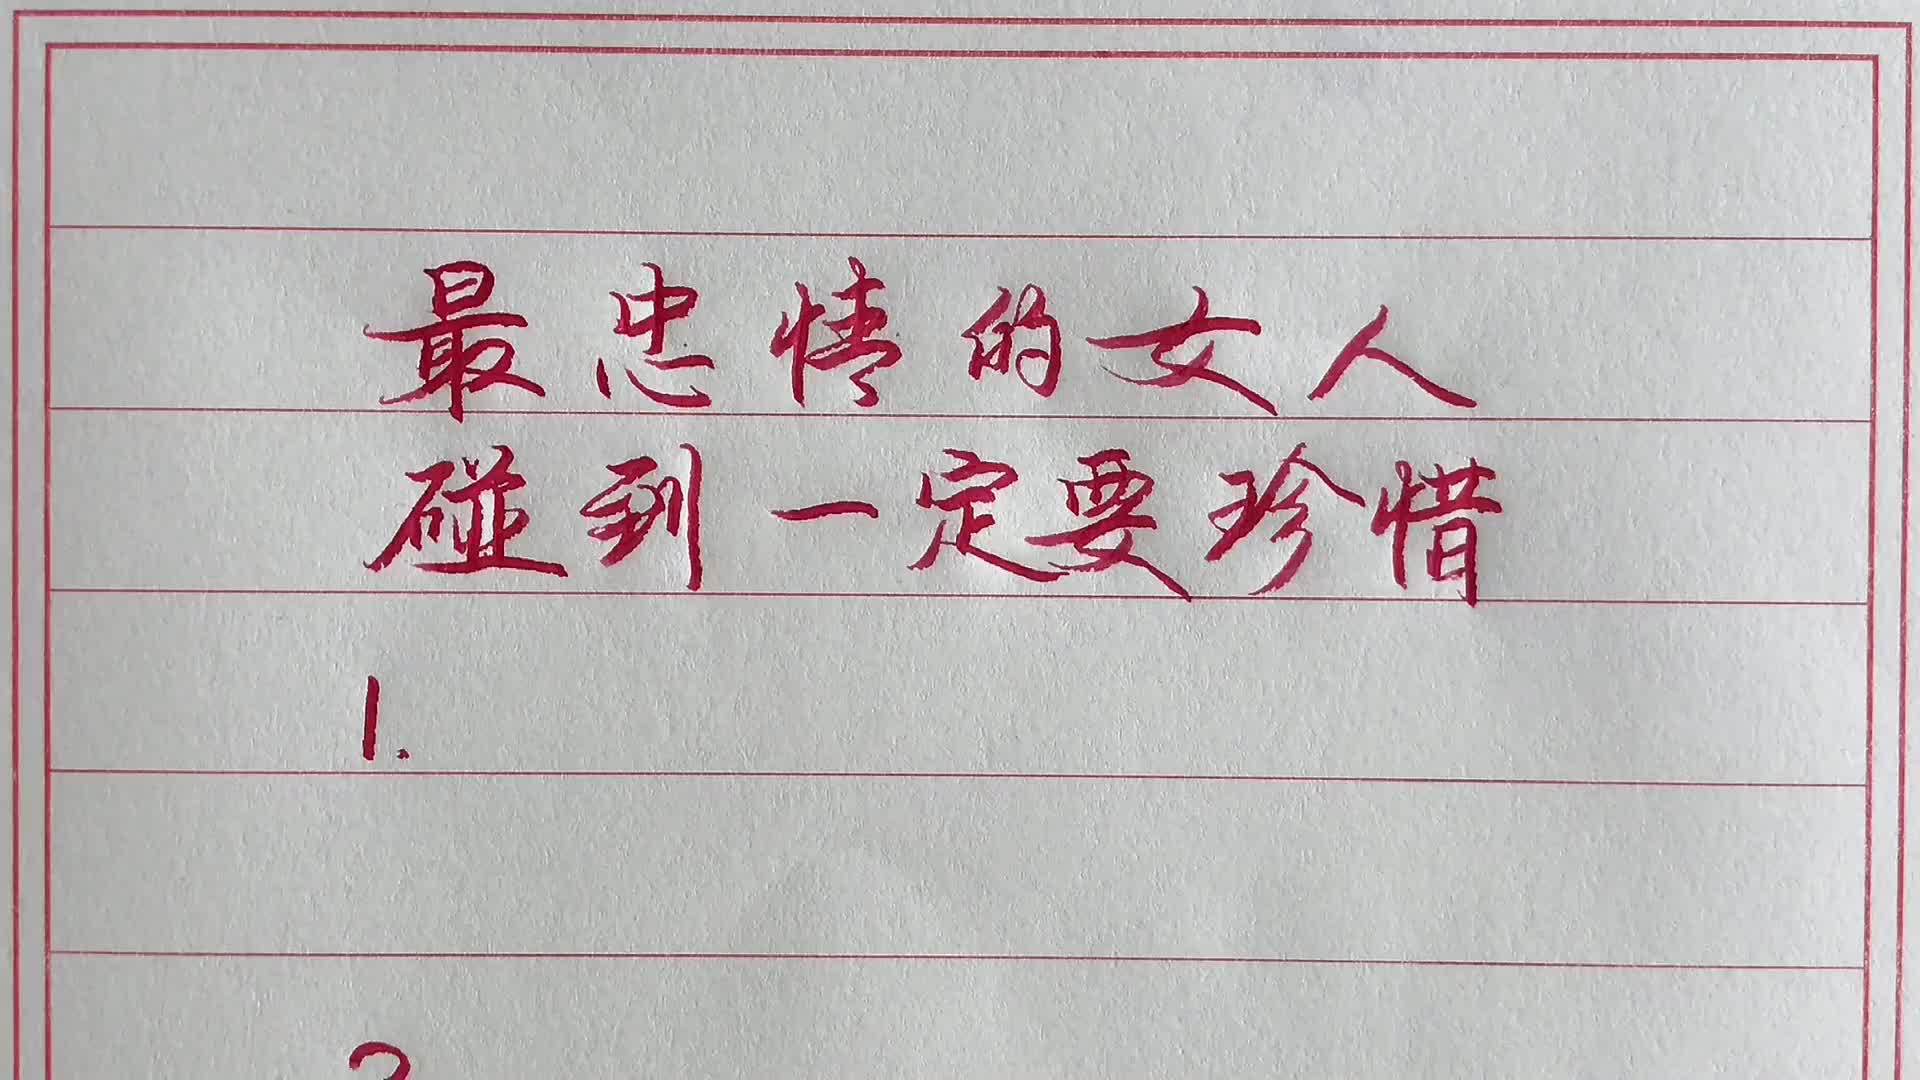 最忠情的女人
碰到一定要珍惜
1.
2